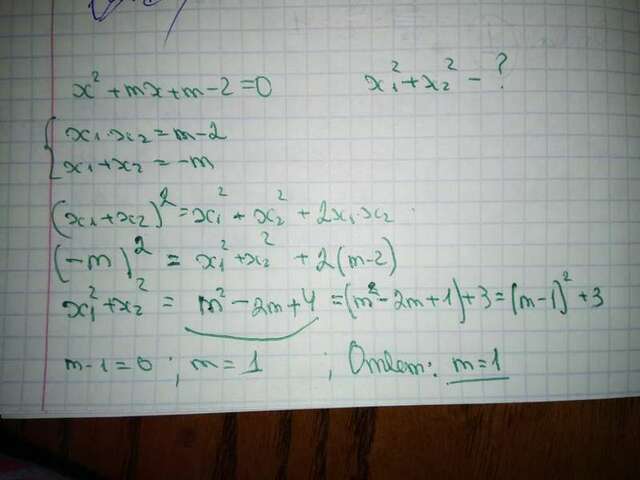 x² + mx + m - 2 = 0 x₁² + x₂² - ?
{ x₁ · x₂ = m - 2
x₁ + x₂ = -m
(x₁ + x₂)² = x₁² + x₂² + 2x₁ · x₂
(-m)² = x₁² + x₂² + 2(m-2)
x₁² + x₂² = m² - 2m + 4 = (m² - 2m + 1) + 3 = (m-1)² + 3
m - 1 = 0 ; m = 1 ; Ответ: m = 1